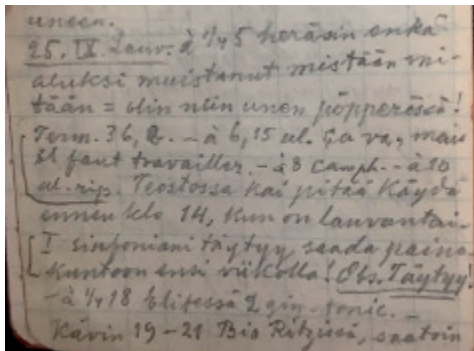 uneen.
25. IX. Lauv. à 1/4 5 heräsin enkä
aluksi muistanut mistään mi-
tään = olin niin unen pöpperössä!
Term. 36, 2. - à 6,15 ul. Ça va, mais
il faut travailler. - à 8 camph. - à 10
ul. rip. Teostossa kai pitää käydä
ennen klo 14, kun on lauvantai.
I sinfoniani täytyy saada paino-
kuntoon ensi viikolla! Obs. Täytyy.
- à 1/4 18 Elitessä 2 gin-tonic. -
Kävin 19-21 Bio Ritzissä, saatoin